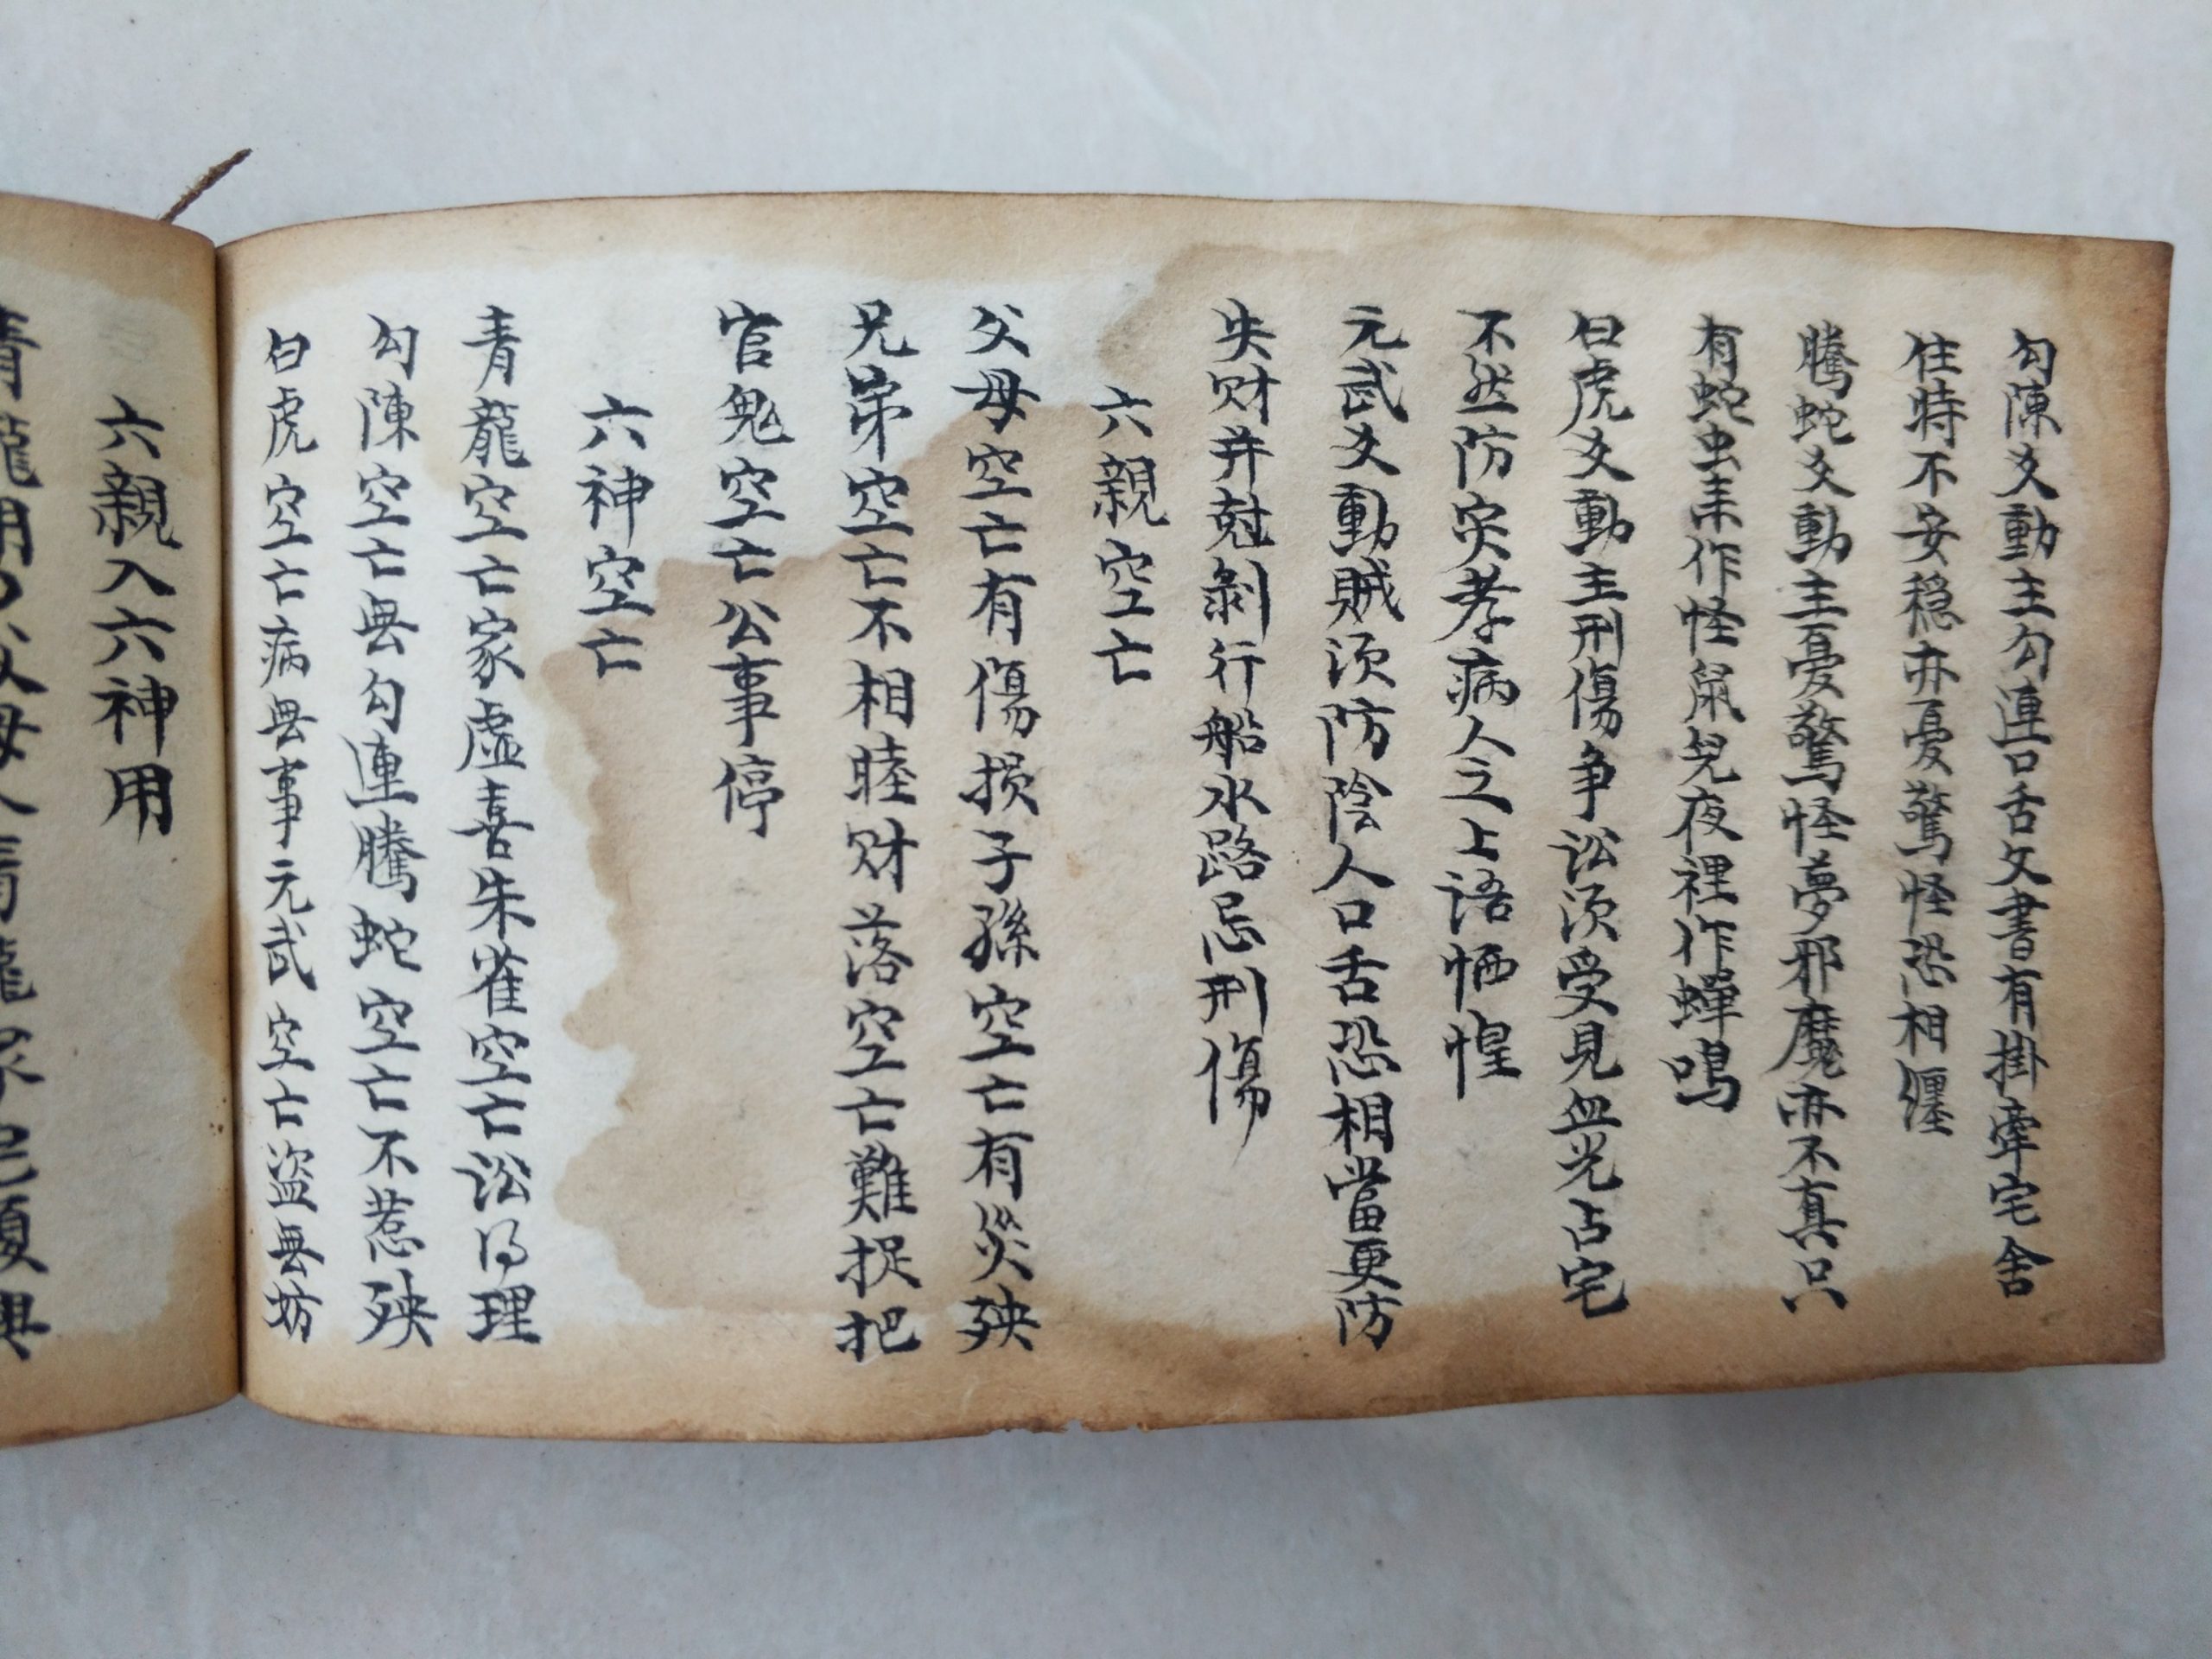 勾陳爻動主勾連口舌文書有掛牽宅舍
住時不安穩亦憂驚怪恐相纒
騰蛇爻動主憂驚怪夢邪魔亦不真只
有蛇虫来作怪鼠兒夜裡作蟬鳴
白虎爻動主刑傷争訟須受見血光占宅
不然防灾孝病人之上語恓惶
元武爻動賊須防陰人口舌恐相當更防
失财并尅剝行船水路忌刑傷
六親空亡
父母空亡有傷损子孫空亡有災殃
兄弟空亡不相睦财落空亡難捉把
官鬼空亡公事停
六神空亡
青龍空亡家虚喜朱雀空亡訟得理
勾陳空亡毋勾連騰蛇空亡不惹殃
白虎空亡病毋事元武空亡盜毋妨
六親入六神用